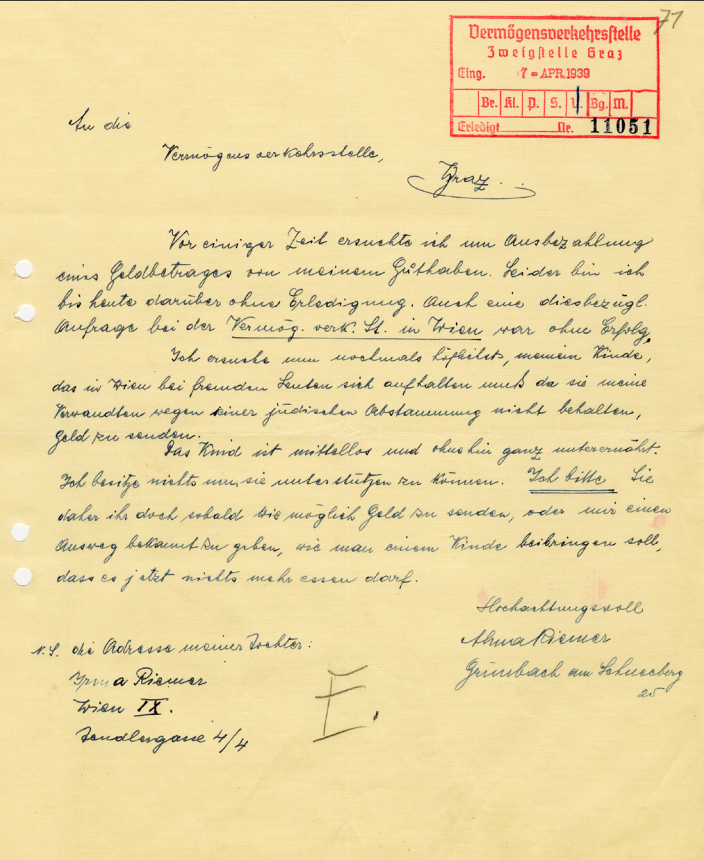 71
Vermögensverkehrsstelle
Zweigstelle Graz
Eing. 7-APR.1939
Br. Kl. P. S. Bg. M.
Erledigt Nr. 11051
An die
Vermögensverkehrsstelle,
Graz.
Vor einiger Zeit ersuchte ich um Ausbezahlung
eines Geldbetrages von meinem Guthaben. Leider bin ich
bis heute darüber ohne Erledigung. Auch eine diesbezügl.
Anfrage bei der Vermög. verk. St. in Wien war ohne Erfolg.
Ich ersuche nun nochmals höflichst, meinem Kinde,
das in Wien bei fremden Leuten sich aufhalten muß da sie meine
Verwandten wegen einer jüdischen Abstammung nicht behalten,
Geld zu senden.
Das Kind ist mittellos und ohnehin ganz unterernährt.
Ich besitze nichts um sie unterstützen zu können. Ich bitte Sie
daher ihr doch sobald wie möglich Geld zu senden, oder mir einen
Ausweg bekannt zu geben, wie man einem Kinde beibringen soll,
dass es jetzt nichts mehr essen darf.
Hochachtungsvoll
Alma Riemer
Grünbach am Schneeberg
N.S. die Adresse meiner Tochter:
Irma Riemer
Wien IX.
4/4
E.